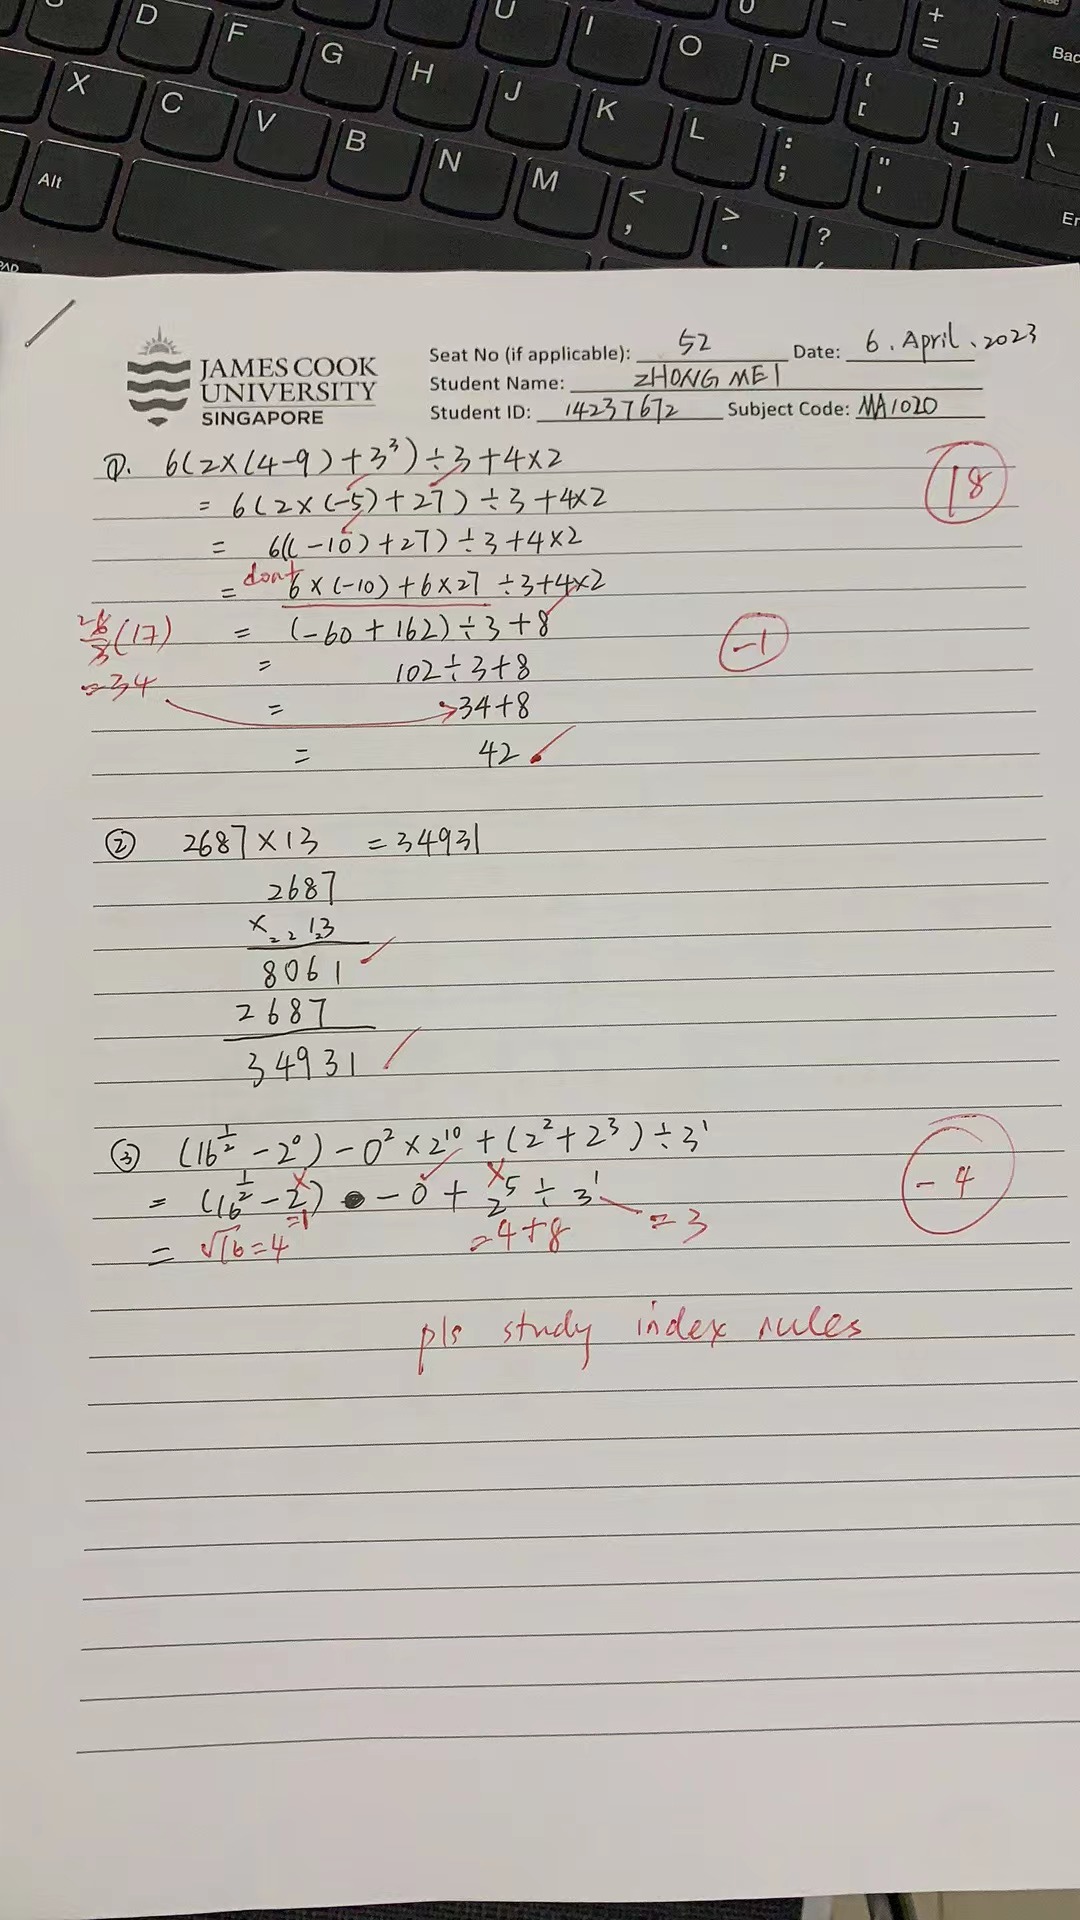 U I O P { [ } ] | \
D F G H J K L : ; " ' 
X C V B N M < , > . ?
+ =
Bac
Alt
JAMES COOK
UNIVERSITY
SINGAPORE
Seat No (if applicable): 52 Date: 6. April. 2023
Student Name: ZHONG MEI
Student ID: 14237672 Subject Code: MA1020
18
①. 6(2×(4-9)+3³)÷3+4×2
= 6(2×(-5)+27)÷3+4×2
= 6((-10)+27)÷3+4×2
dont
= 6×(-10)+6×27÷3+4×2
(17)
= (-60+162)÷3+8
-1
=34
= 102÷3+8
= 34+8
= 42
② 2687×13 =34931
2687
× 13
8061
2687
34931
③ (16^½ - 2⁰) - 0² × 2¹⁰ + (2² + 2³) ÷ 3¹
= (16^½ - 2) - 0 + 2⁵ ÷ 3¹
=1
= √16=4
=4+8
=3
-4
pls study index rules